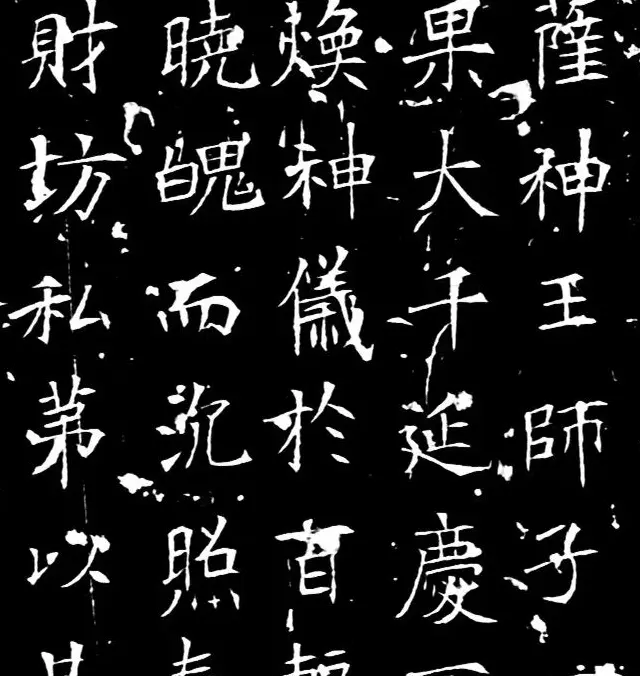 薩神王師子
果大千延慶
煥神儀於百
曉魄而沉照
財坊私第以